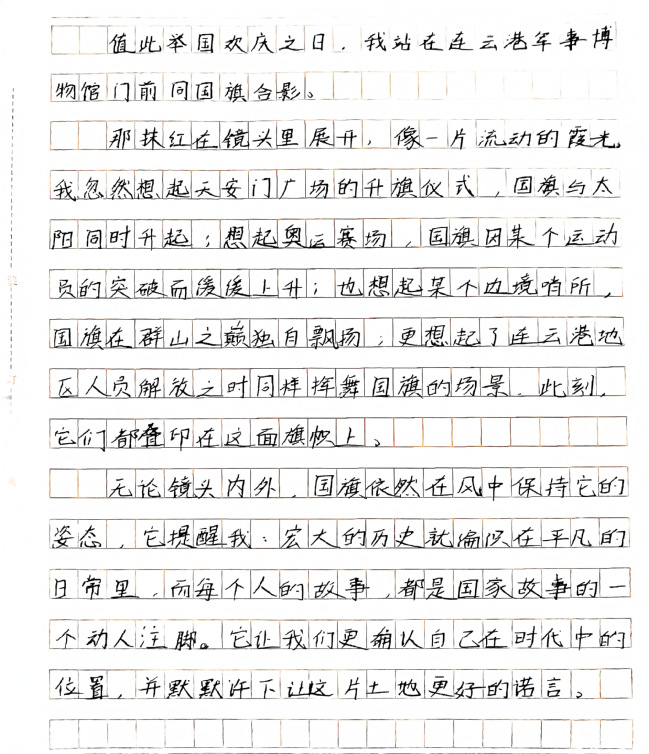 值此举国欢庆之日，我站在连云港军事博
物馆门前同国旗合影。
那抹红在镜头里展开，像一片流动的霞光。
我忽然想起天安门广场的升旗仪式，国旗与太
阳同时升起；想起奥运赛场，国旗因某个运动
员的突破而缓缓上升；也想起某个边境哨所，
国旗在群山之巅独自飘扬；更想起了连云港地
区人员解放之时同样挥舞国旗的场景。此刻，
它们都叠印在这面旗帜上。
无论镜头内外，国旗依然在风中保持它的
姿态，它提醒我：宏大的历史就编织在平凡的
日常里，而每个人的故事，都是国家故事的一
个动人注脚。它让我们更确认自己在时代中的
位置，并默默许下让这片土地更好的诺言。